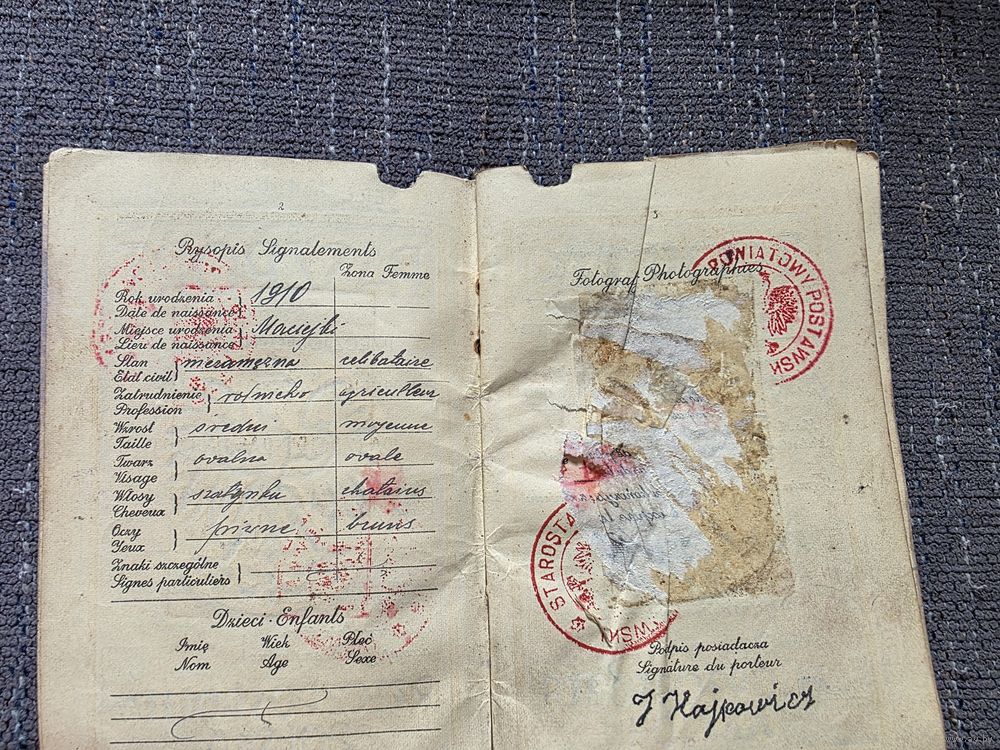 2
Rysopis Signalements
Żona Femme
Rok urodzenia
Date de naissance
1910
Miejsce urodzenia
Lieu de naissance
Stan
Etat civil
celibataire
Zatrudnienie
Profession
rolnicko agriculteur
Wzrost
Taille
sredni moyenne
Twarz
Visage
ovalna ovale
Włosy
Cheveux
szatynka
Oczy
Yeux
piwne bruns
Znaki szczególne
Signes particuliers
Dzieci-Enfants
Imię Wiek Płeć
Nom Age Sexe
3
Fotograf Photographies
POWIATOWY POSTAWSK
STAROSTA
WSK
Podpis posiadacza
Signature du porteur
J Hajkowicz